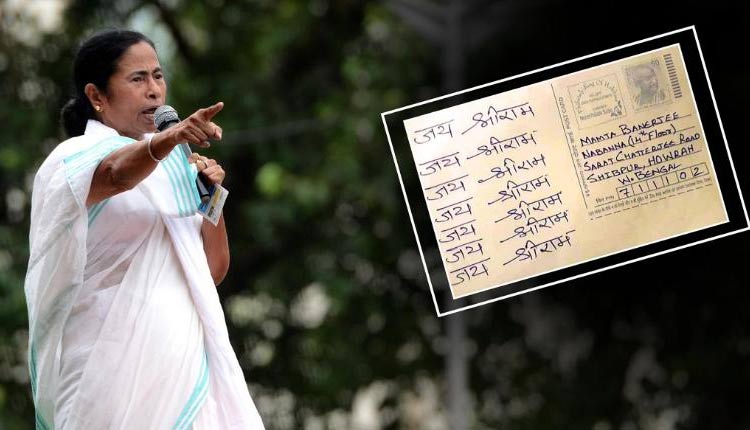 जय श्रीराम
जय श्रीराम
जय श्रीराम
जय श्रीराम
जय श्रीराम
जय श्रीराम
जय श्रीराम
POST CARD
MAMTA BANERJEE
NABANNA (14th FLOOR)
SARAT CHATTERJEE ROAD
SHIBPUR, HOWRAH
W. BENGAL
711102